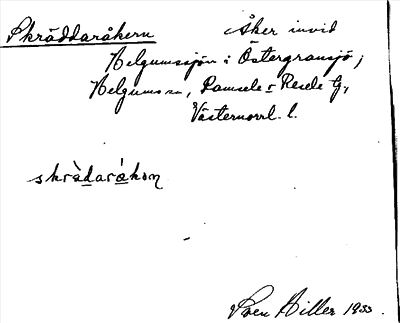 Skräddaråkern Åker invid
Helgumssjön i Östergransjö,
Helgums sn, Ramsele o Resele tg,
Västernorrl. l.
skrä̀daråkon
Sven Hiller 1933.